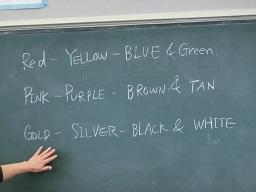 Red - YELLOW - BLUE & Green
PINK - PURPLE - BROWN & TAN
GOLD - SILVER - BLACK & WHITE